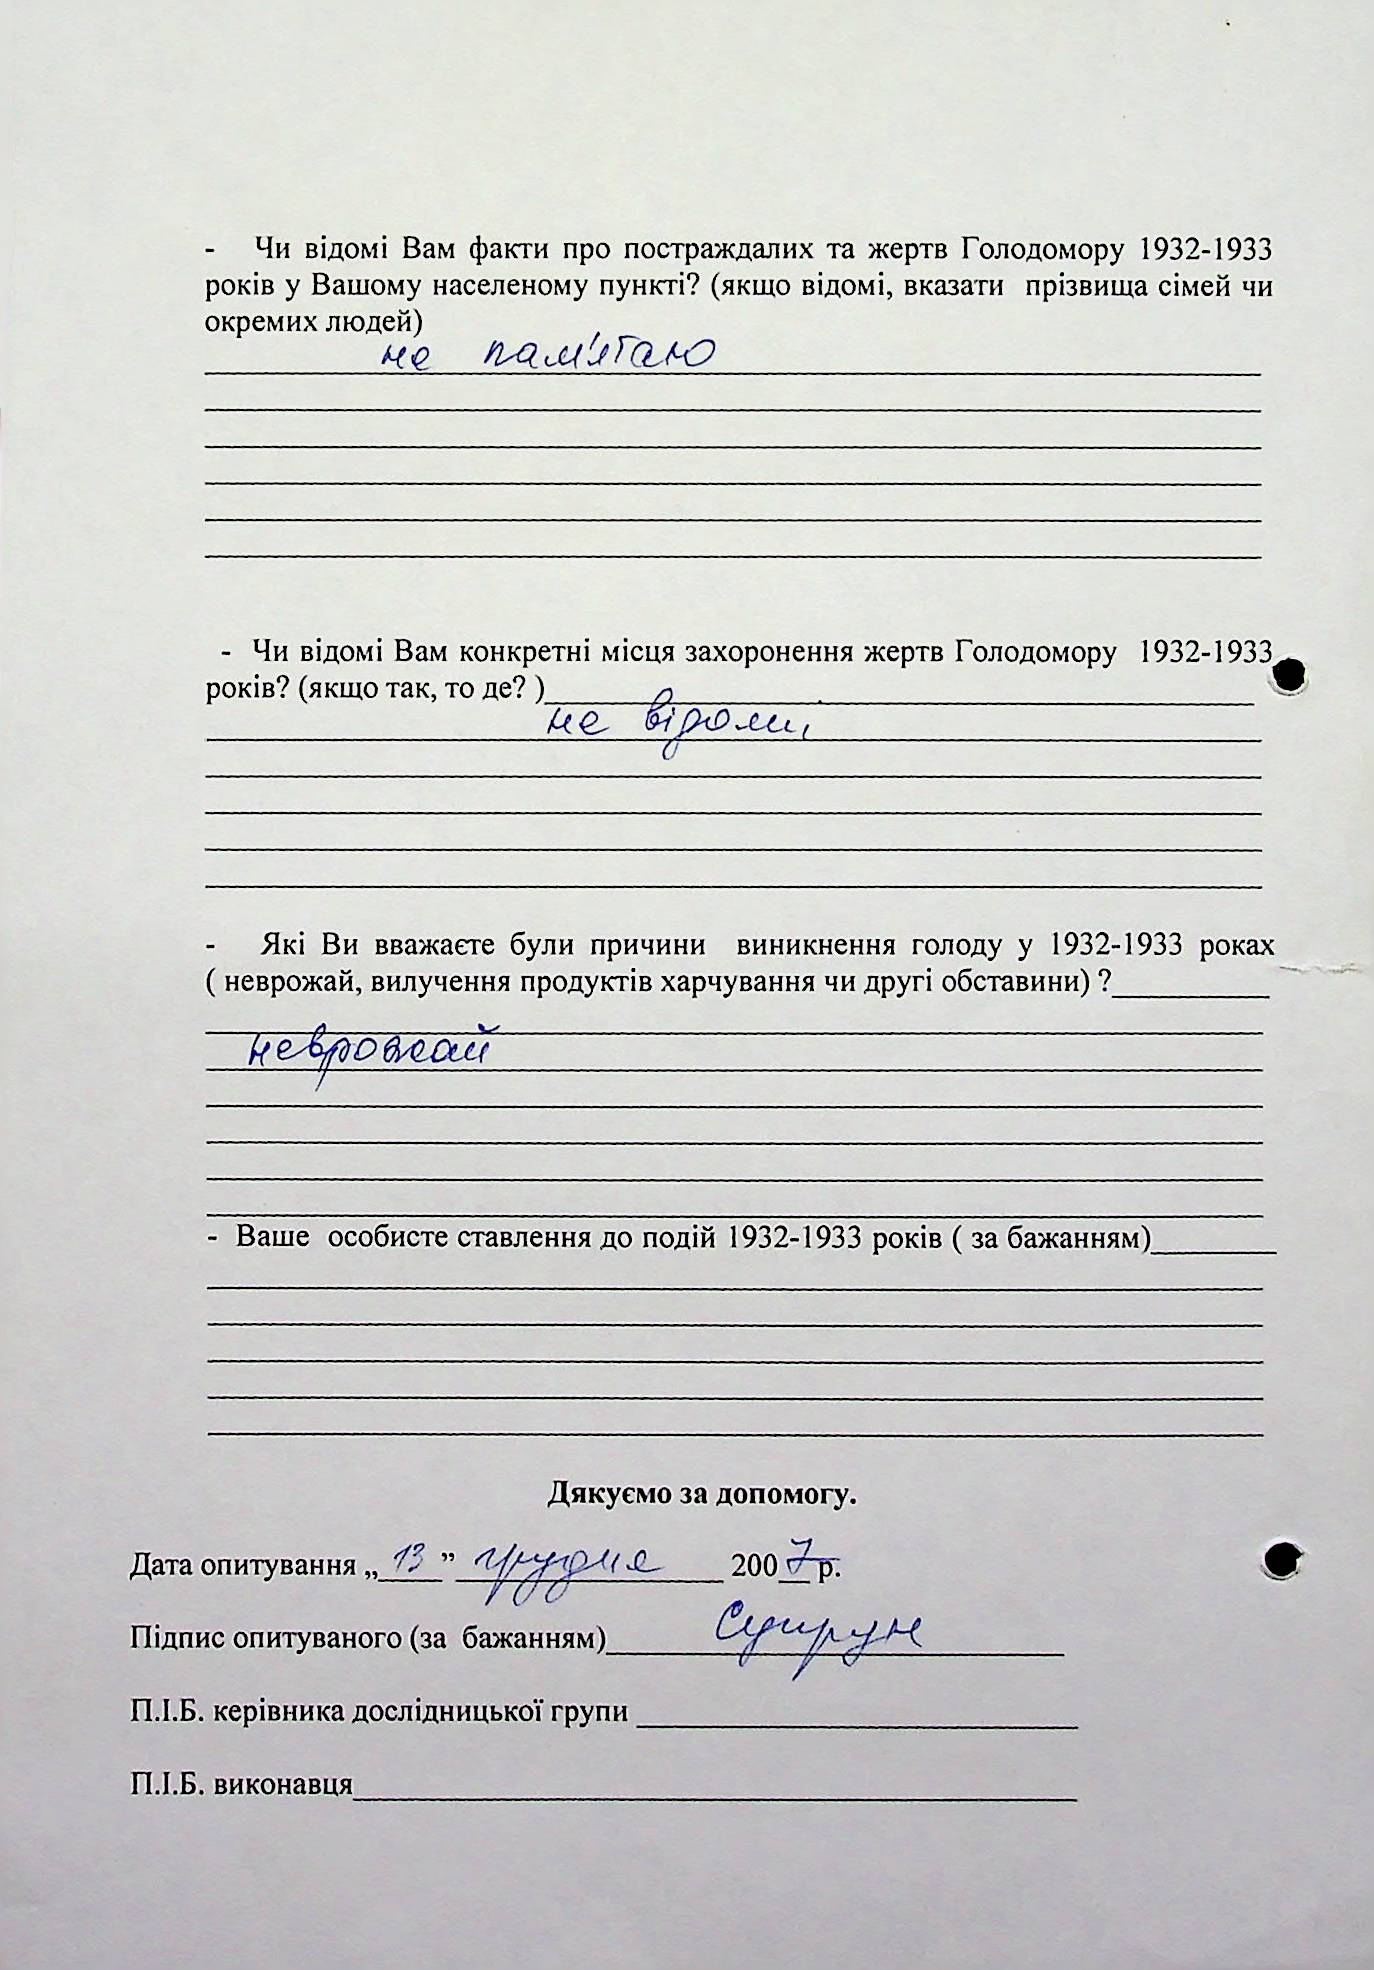 - Чи відомі Вам факти про постраждалих та жертв Голодомору 1932-1933
років у Вашому населеному пункті? (якщо відомі, вказати прізвища сімей чи
окремих людей)
не пам'ятаю
- Чи відомі Вам конкретні місця захоронення жертв Голодомору 1932-1933
років? (якщо так, то де? )
не відомі
- Які Ви вважаєте були причини виникнення голоду у 1932-1933 роках
( неврожай, вилучення продуктів харчування чи другі обставини) ?
неврожай
- Ваше особисте ставлення до подій 1932-1933 років ( за бажанням)
Дякуємо за допомогу.
Дата опитування „ 13 ” грудня 2007 р.
Підпис опитуваного (за бажанням)
П.І.Б. керівника дослідницької групи
П.І.Б. виконавця